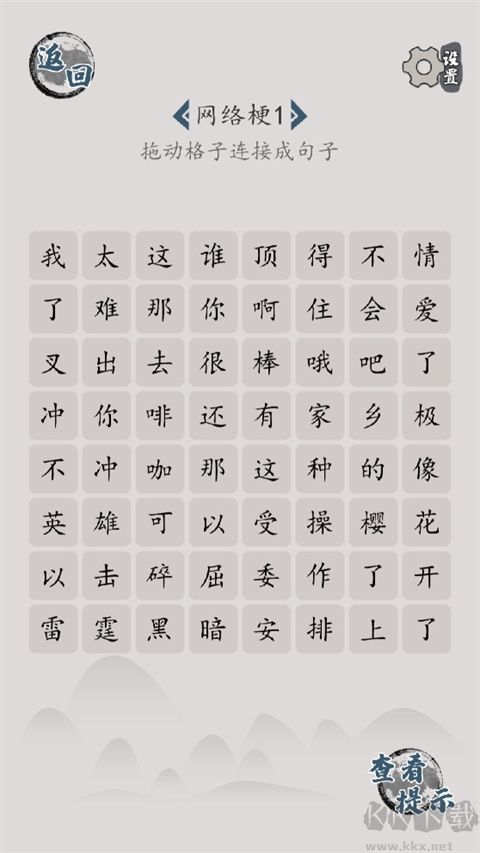 返回
设置
网络梗1
拖动格子连接成句子
我太这谁顶得不情
了难那你啊住会爱
叉出去很棒哦吧了
冲你啡还有家乡极
不冲咖那这种的像
英雄可以受操樱花
以击碎屈委作了开
雷霆黑暗安排上了
查看
提示
KK下载
www.kkx.net